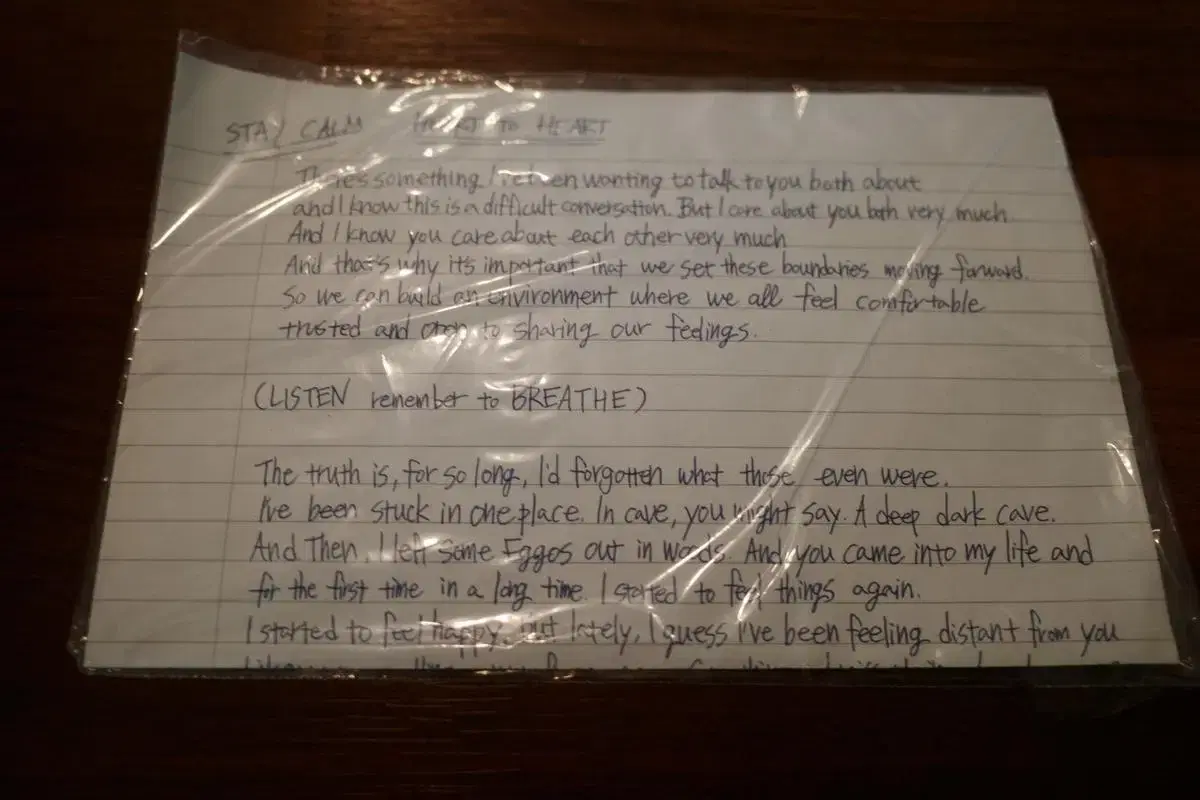 STAY CALM HEART to HEART
There's something I've been wanting to talk to you both about
and I know this is a difficult conversation. But I care about you both very much
And I know you care about each other very much
And that's why it's important that we set these boundaries moving forward.
So we can build an environment where we all feel comfortable
trusted and open to sharing our feelings.
(LISTEN remember to BREATHE)
The truth is, for so long, I'd forgotten what those even were.
I've been stuck in one place. In cave, you might say. A deep dark cave.
And Then, I left some Eggos out in woods. And you came into my life and
for the first time in a long time. I started to feel things again.
I started to feel happy. but lately, I guess I've been feeling distant from you